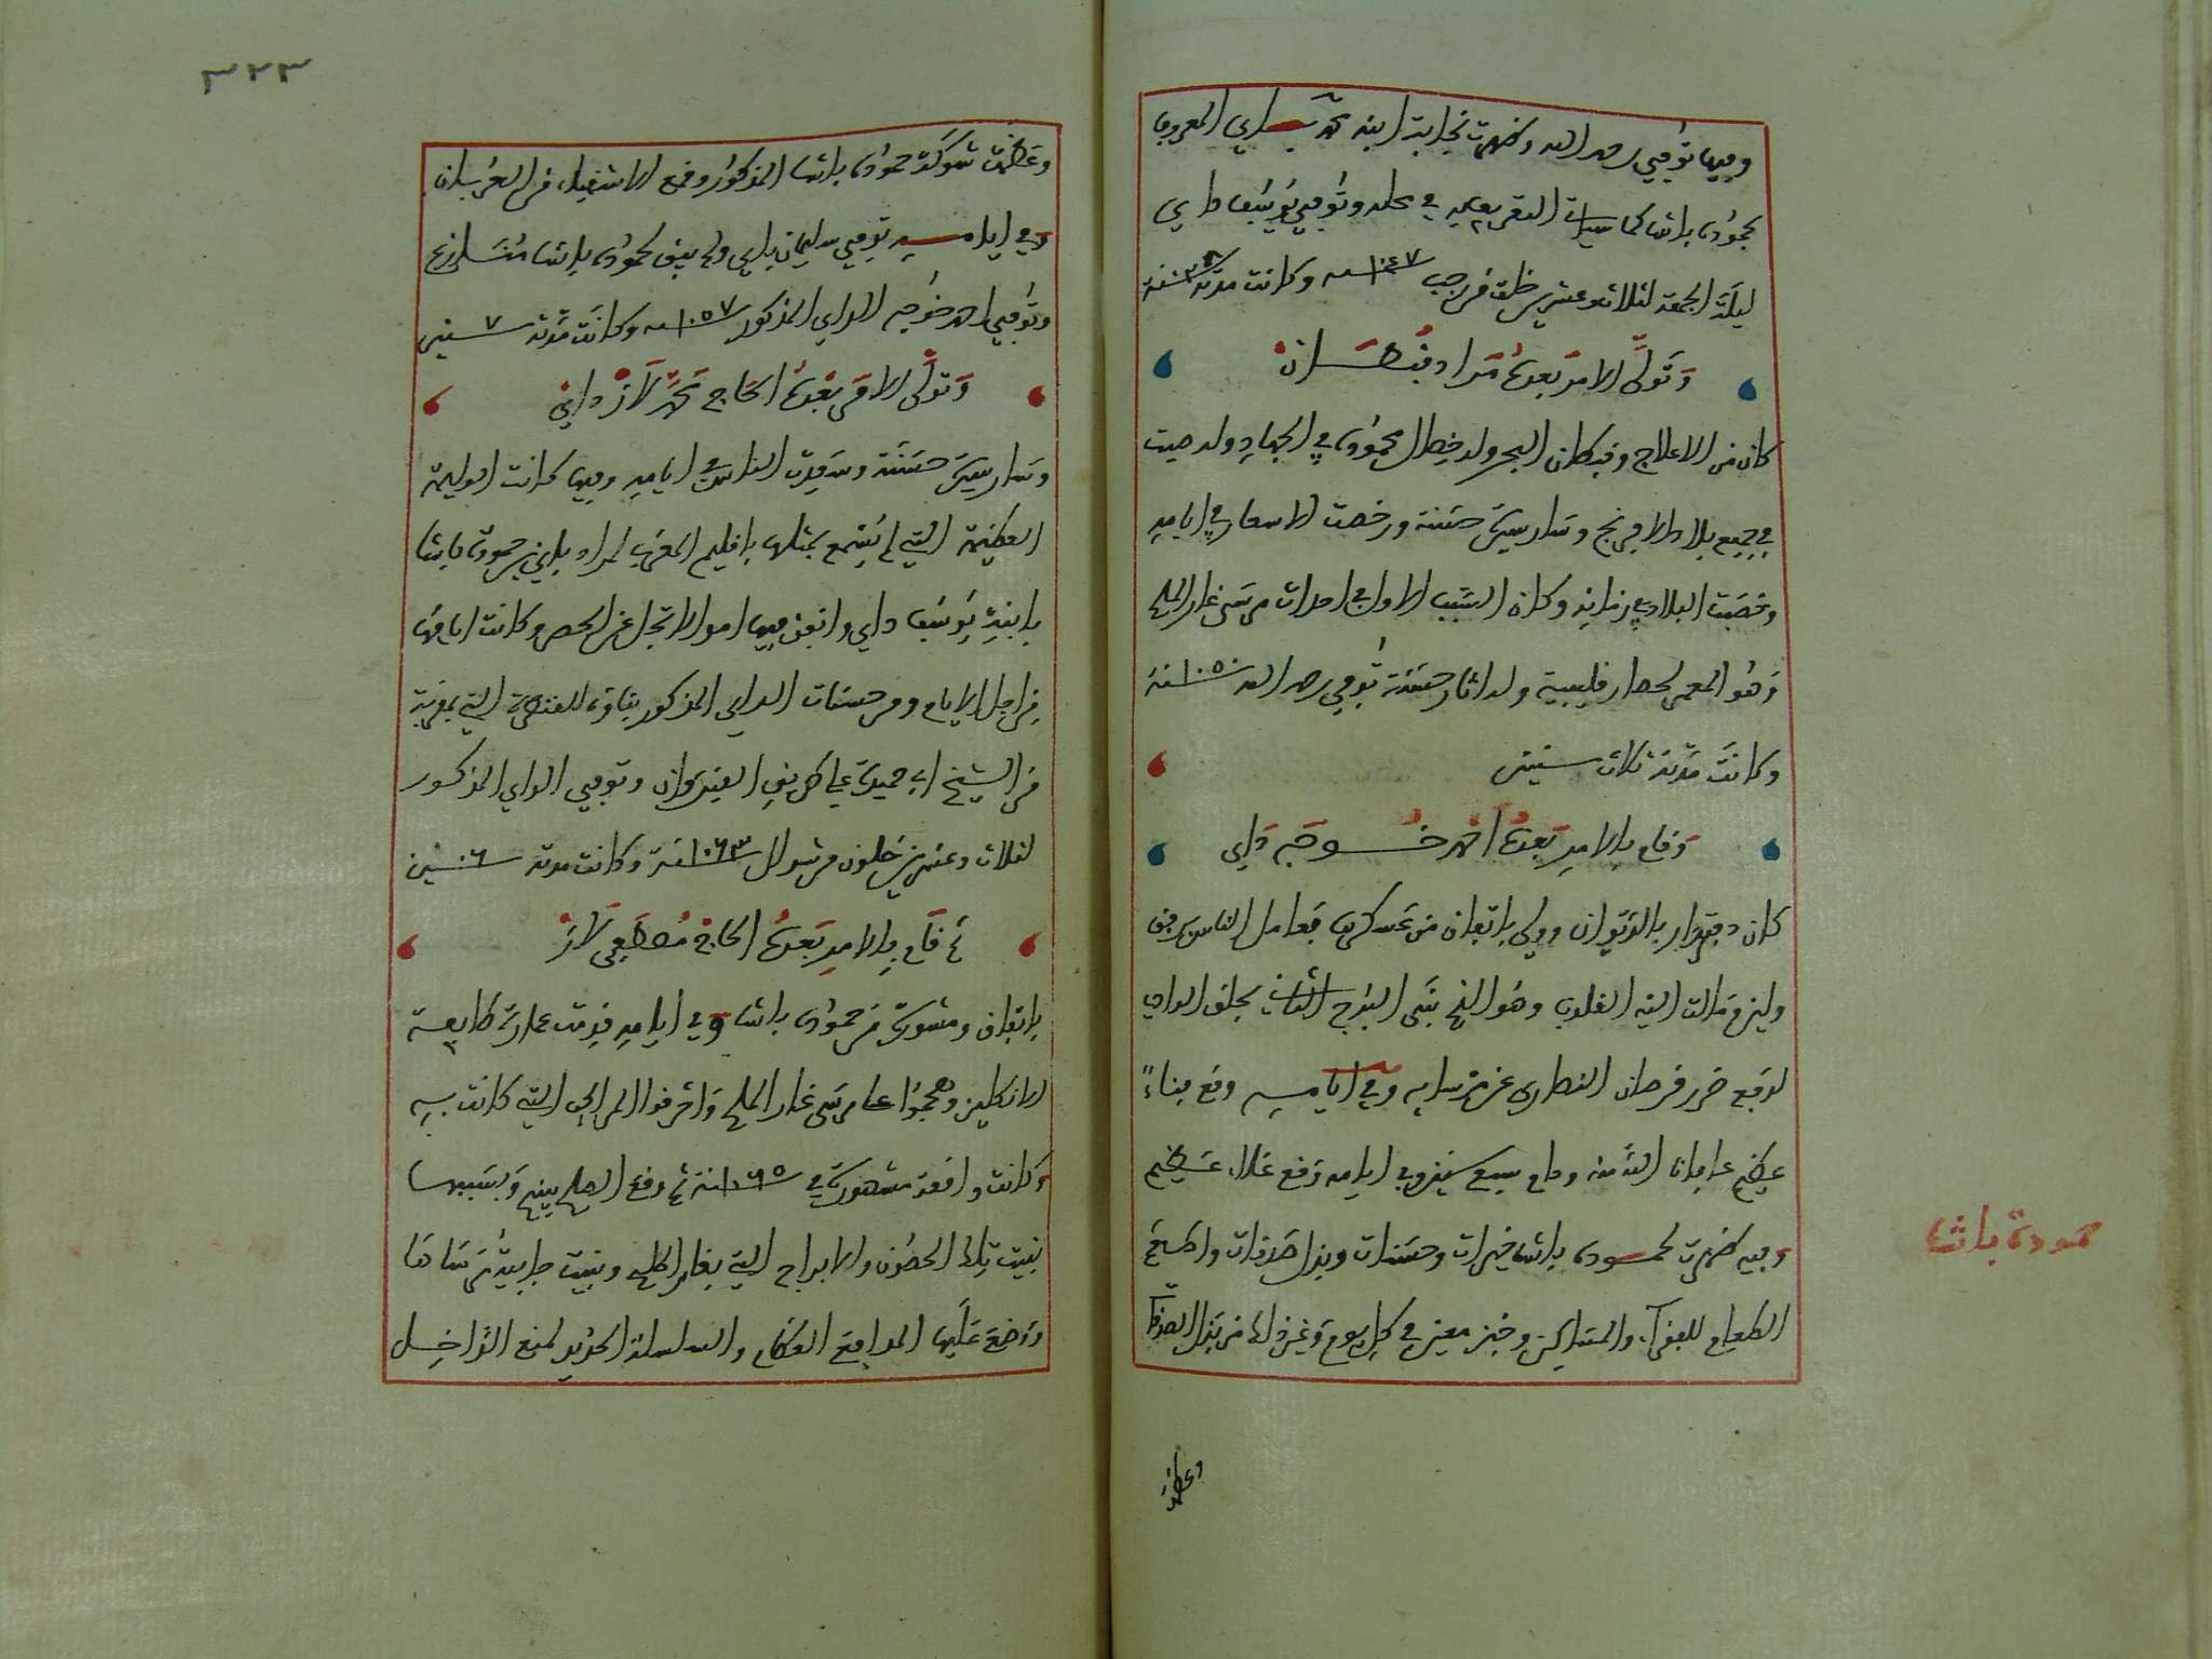 وفيها توفي رحمه الله وظهرت نجابة ابنه محمد باي المعروف
بحمودة باشا كما سيأت التعريف به في محله وتوفي يوسف داي
ليلة الجمعة لثلاث وعشرين خلت من رجب ١٠٤٧ سنة وكانت مدته ٢٨ سنة
وتولى الامر بعده مراد
كان من الاعلاج وقبطان البحر وله خصال محمودة في الجهاد وله صيت
في جميع بلاد الافرنج وسار سيرة حسنة ورخصت الاسعار في ايامه
وخصبت البلاد في زمانه وكان السبب الاول في احداث مرسى غار الملح
وهو المعمر لحصار قليبية وله اثار حسنة توفي رحمه الله ١٠٥٠ سنة
وكانت مدته ثلاث سنين
وقام بالامر بعده احمد خوجه داي
كان دفتردار بالديوان وولي باتفاق من عسكره فعامل الناس برفق
ولين ومالت اليه القلوب وهو الذي بنى البرج الثاني بحلق الوادي
لدفع ضرر قرصان النصارى عن مرسايه وفي ايامه وقع فناء
عظيم عافانا الله منه ودام سبع سنين وفي ايامه وقع غلاء عظيم
وفيه ظهرت لحمودة باشا خيرات وحسنات وبذل صدقات واطعم
الطعام للفقراء والمساكين وخبز معين في كل يوم وغير ذلك من بذل الصدقات
وعظمت
حمودة باشا
٣٢٣
وعظمت شوكة حمودة باشا المذكور وقمع الاشقياء من العربان
وفي ايامه توفي سليمان باي ولم يبق لحمودة باشا منازع
وتوفي احمد خوجه الداي المذكور ١٠٥٧ سنة وكانت مدته ٧ سنين
وتولى الامر بعده الحاج محمد لاز داي
وسار سيرة حسنة وسعدت الناس في ايامه وفيها كانت الوليمة
العظيمة التي لم يسمع بمثلها باقليم المغرب لمراد باي بن حمودة باشا
بابنة يوسف داي وانفق فيها اموالا تجل عن الحصر وكانت ايامها
من اجل الايام ومن حسنات الداي المذكور بناؤه للقنطرة التي بمقربة
من الشيخ ابي حميدة على طريق القيروان وتوفي الداي المذكور
لثلاث وعشرين خلون من شوال ١٠٦٣ سنة وكانت مدته ٦ سنين
ثم قام بالامر بعده الحاج مصطفى لاز
باتفاق ومشورة من حمودة باشا وفي ايامه قدمت عمارة طايفة
الانكليز وهجموا على مرسى غار الملح واحرقوا المراكب التي كانت به
وكانت واقعة مشهورة في ١٠٦٥ سنة ثم وقع الصلح بينهم وبسببها
بنيت تلك الحصون والابراج التي بغار الملح وبنيت جابية مرساها
ووضع عليها المدافع العظام والسلسلة الحديد لمنع الداخل